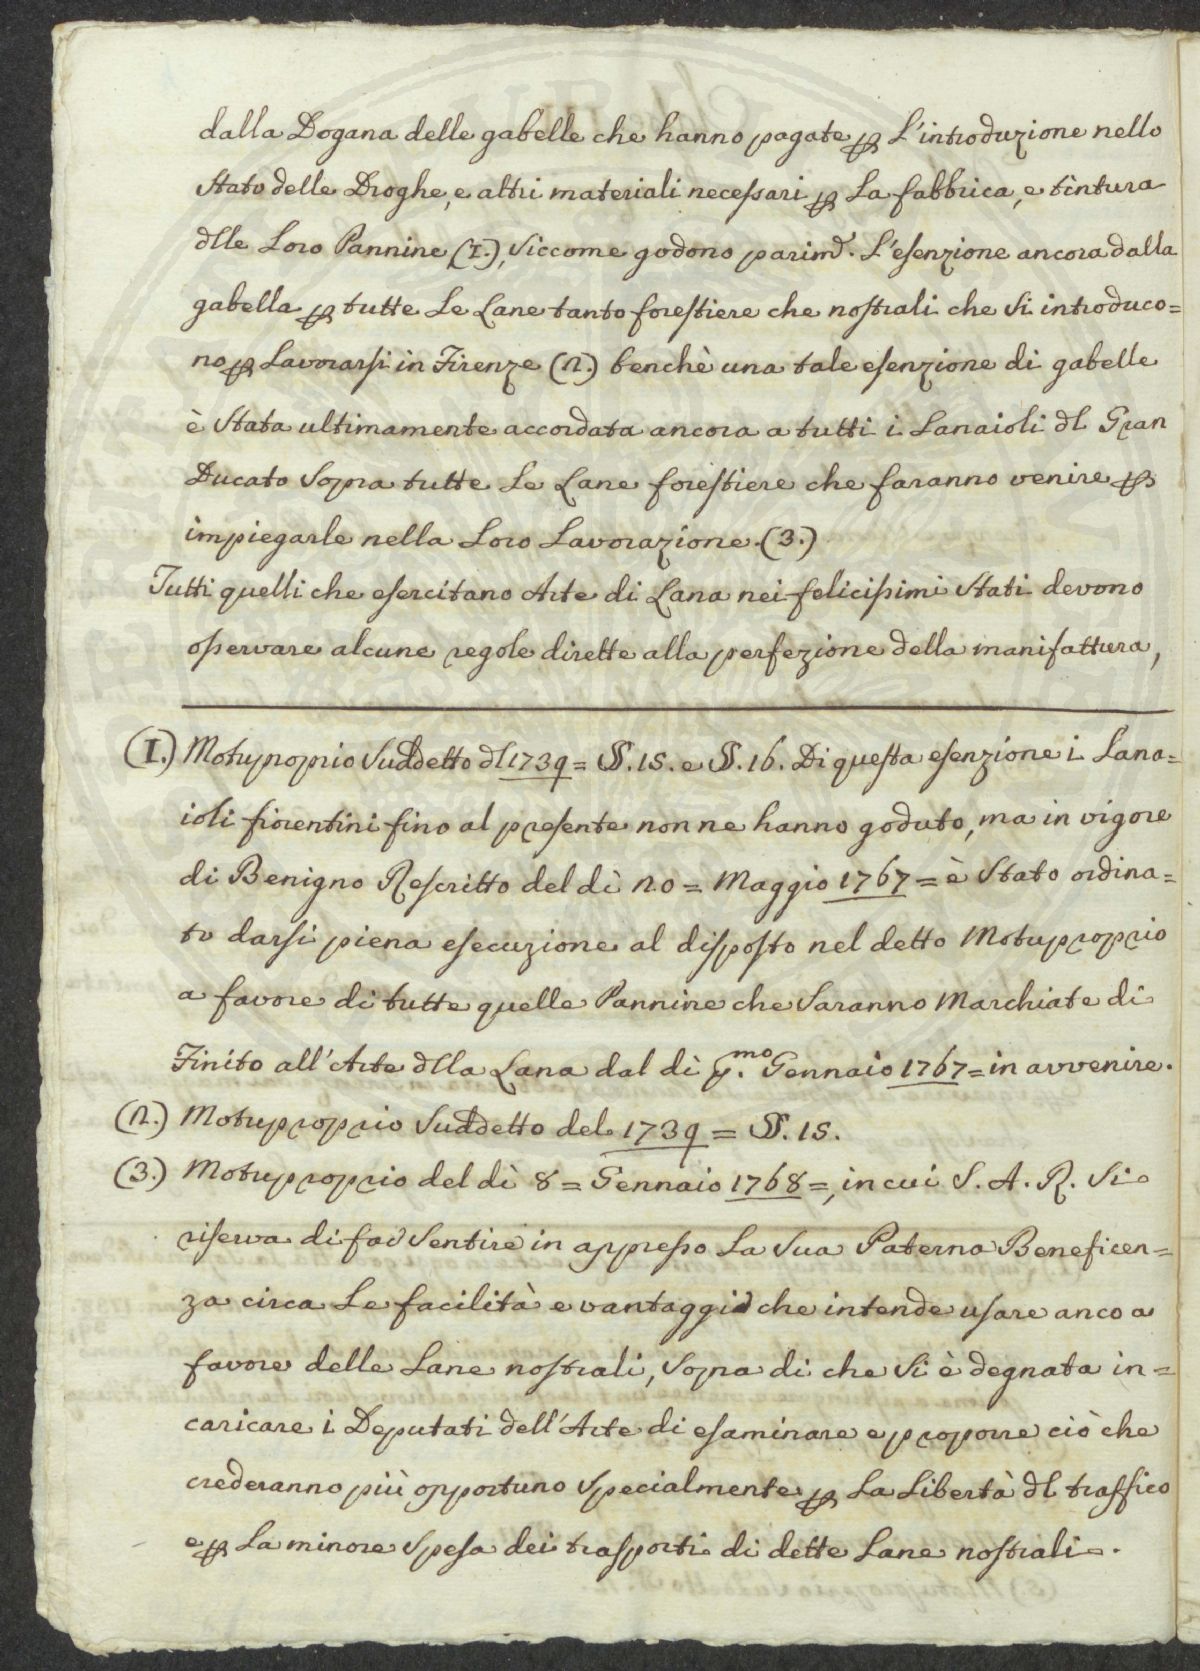 dalla Dogana delle gabelle che hanno pagate ꝑ L'introduzione nello
Stato delle Droghe, e altri materiali necessari ꝑ La fabbrica, e tintura
dlle Loro Pannine (1.), Siccome godono parimd. L'esenzione ancora dalla
gabella ꝑ tutte Le Lane tanto forestiere che nostrali che Si introduco=
no ꝑ Lavorarsi in Firenze (2.) benchè una tale esenzione di gabelle
è Stata ultimamente accordata ancora a tutti i Lanaioli dl Gran
Ducato Sopra tutte Le Lane forestiere che faranno venire ꝑ
impiegarle nella Loro Lavorazione. (3.)
Tutti quelli che esercitano Arte di Lana nei felicissimi Stati devono
osservare alcune regole dirette alla perfezione della manifattura,
(1.) Motuproprio Suddetto dl 1739 = §. 15. e §. 16. Di questa esenzione i Lana=
ioli fiorentini fino al presente non ne hanno goduto, ma in vigore
di Benigno Rescritto del dì 20 = Maggio 1767 = è Stato ordina=
to darsi piena esecuzione al disposto nel detto Motuproprio
a favore di tutte quelle Pannine che Saranno Marchiate di
Finito all'Arte dlla Lana dal dì p.mo Gennaio 1767 = in avvenire.
(2.) Motuproprio Suddetto del 1739 = §. 15.
(3.) Motuproprio del dì 8 = Gennaio 1768 =, in cui S. A. R. Si
riserva di far Sentire in appresso La Sua Paterna Beneficen=
za circa Le facilità e vantaggi che intende usare anco a
favore delle Lane nostrali, Sopra di che Si è degnata in=
caricare i Deputati dell'Arte di esaminare e proporre ciò che
crederanno più opportuno Specialmente ꝑ La Libertà dl traffico
e ꝑ La minore Spesa dei trasporti di dette Lane nostrali.